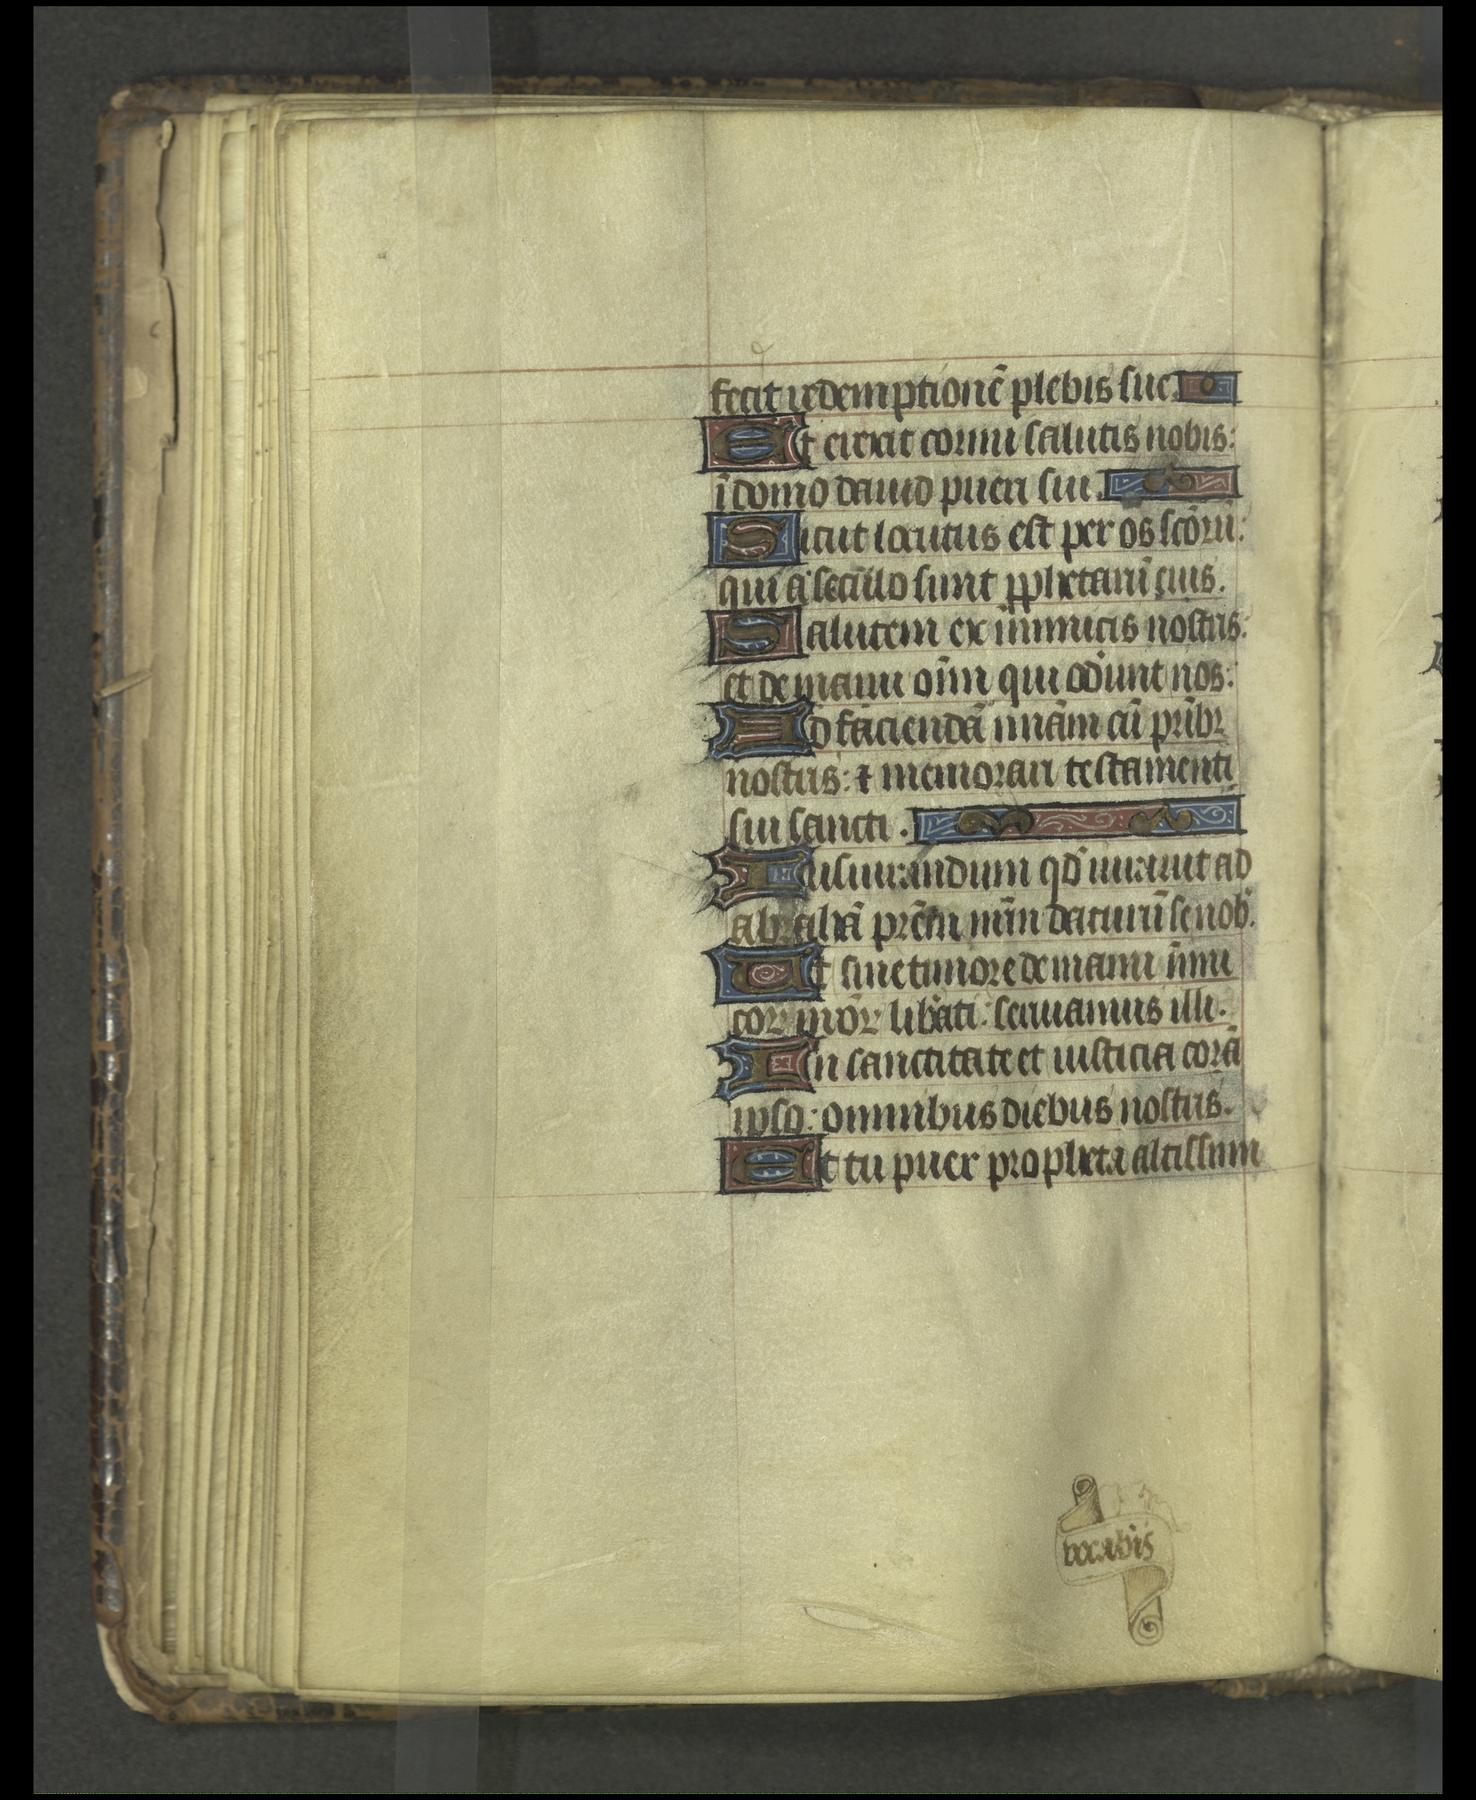 fecit redemptionē plebis sue.
Et erexit cornu salutis nobis:
ī domo dauid pueri sui.
Sicut locutus est per os scōrū:
qui a seculo sunt ꝓphetarū eius.
Salutem ex inimicis nostris:
et de manu oīm qui oderunt nos:
Ad faciendā mīam cū prībꝫ
nostris: ⁊ memorari testamenti
sui sancti.
Iusiurandum qd̄ iurauit ad
abrahā prēm nr̄m daturū se nob̄.
Ut sine timore de manu inimi
coꝝ nr̄oꝝ liberati: seruiamus illi.
In sanctitate et iusticia corā
ipso: omnibus diebus nostris.
Et tu puer propheta altissimi
vocabis